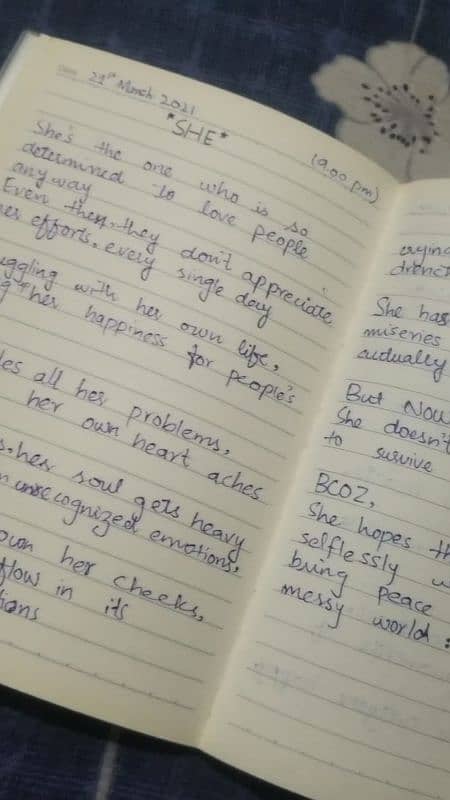 21st March 2021
*SHE*
(9.00 pm)
She's the one who is so
determined to love people
anyway
Even then, they don't appreciate
her efforts, every single day
uggling with her own life,
g her happiness for people's
les all her problems,
her own heart aches
s, her soul gets heavy
unrecognized emotions,
own her cheeks,
flow in its
tions
crying
drench
She has
miseries
cudually
But Now
She doesn't
to survive
BCOZ,
She hopes th
selflessly w
bring peace
messy world :